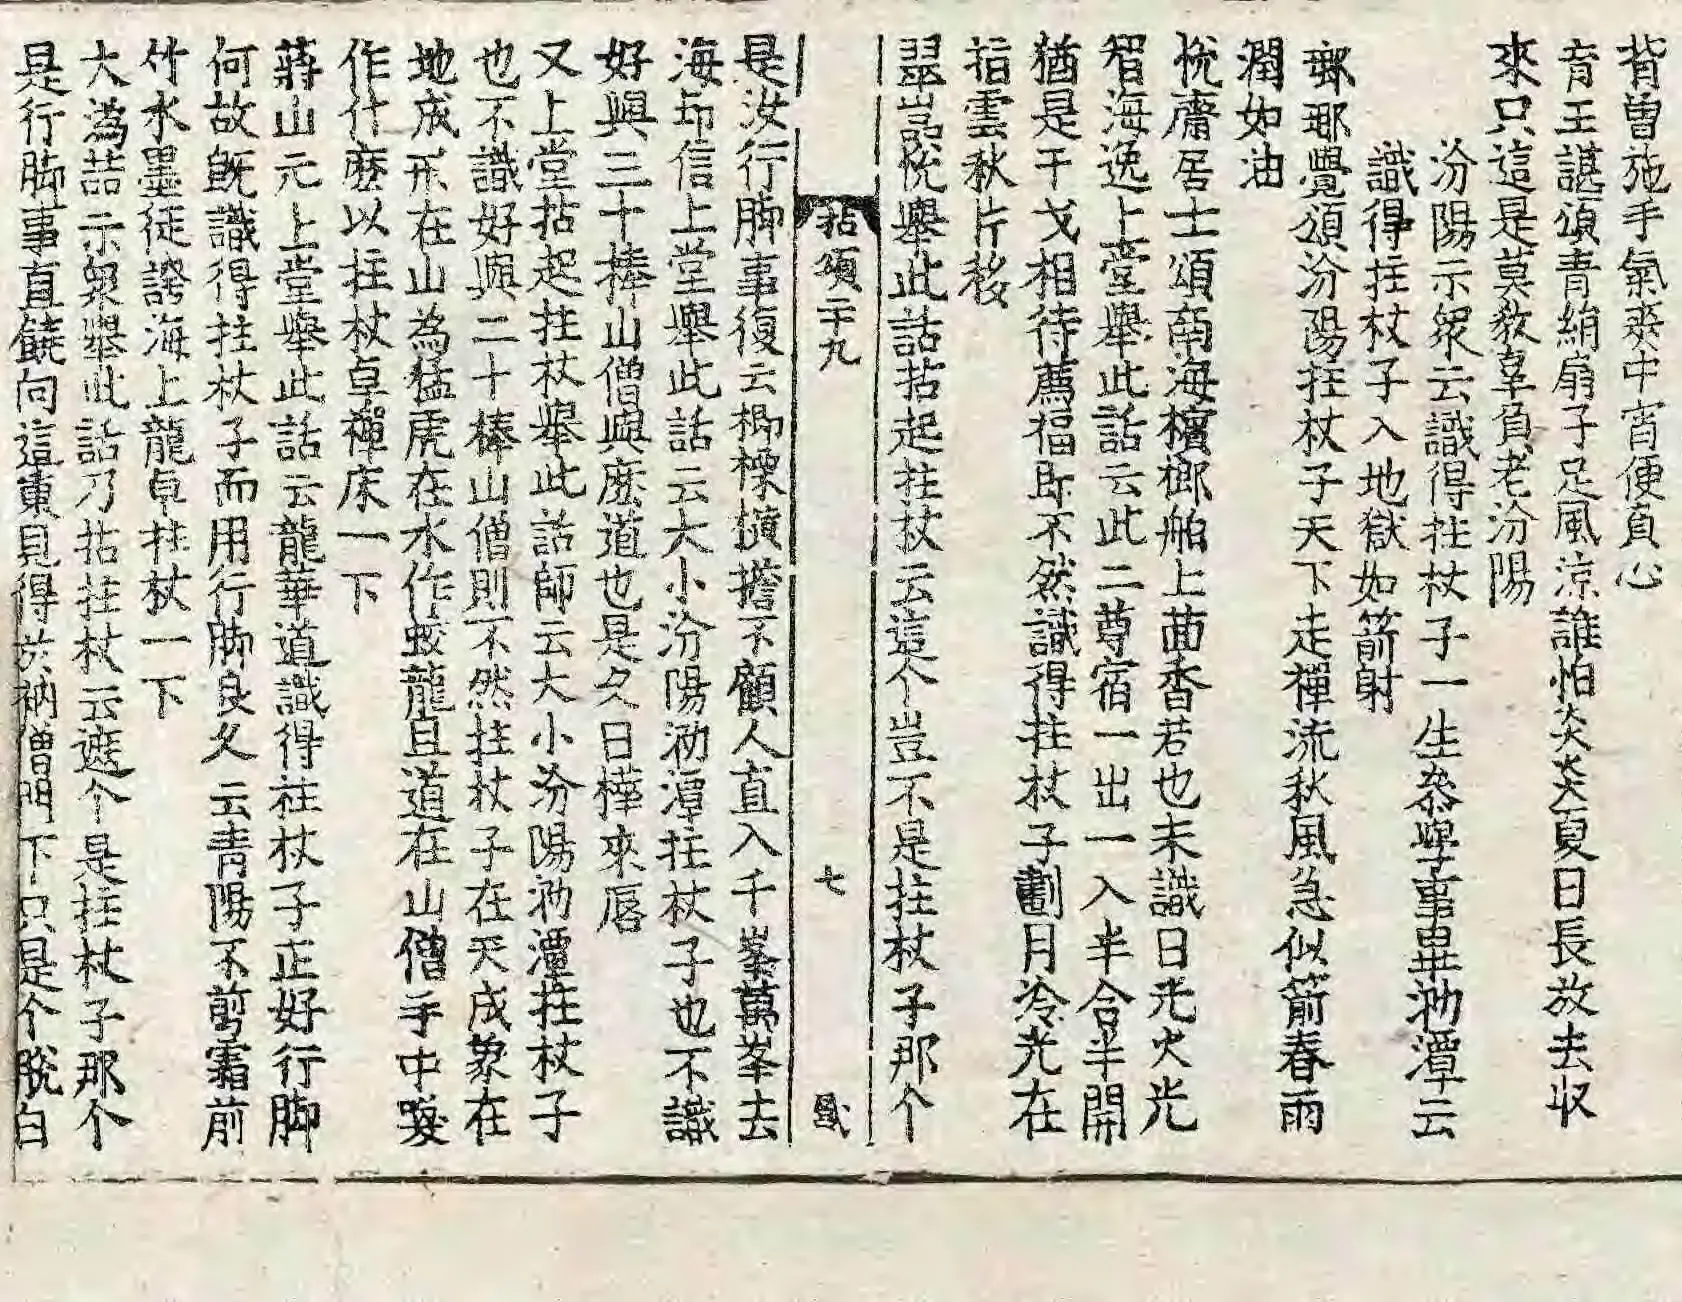 背曽施手氣爽中宵便負心
育王諶頌青絹扇子足風凉誰怕炎炎夏日長放去収
來只這是莫教辜負老汾陽
汾陽示衆云識得拄杖子一生叅學事畢泐潭云
識得拄杖子入地獄如箭射
瑯瑘覺頌汾陽拄杖子天下走禪流秋風急似箭春雨
潤如油
悅齋居士頌南海檳榔舶上茴香若也未識日光火光
智海逸上堂舉此話云此二尊宿一出一入半合半開
猶是干戈相待薦福即不然識得拄杖子劃月冷光在
指雲秋片移
翠嵓悅舉此話拈起拄杖云這个豈不是拄杖子那个
拈頌二十九 七
是汝行脚事復云楖𣗖橫擔不顧人直入千峯萬峯去
海印信上堂舉此話云大小汾陽泐潭拄杖子也不識
好與三十棒山僧與麽道也是久日樺來脣
又上堂拈起拄杖舉此話師云大小汾陽泐潭拄杖子
也不識好與二十棒山僧則不然拄杖子在天成象在
地成形在山為猛虎在水作蛟龍且道在山僧手中喚
作什麽以拄杖卓禪床一下
蔣山元上堂舉此話云龍華道識得拄杖子正好行脚
何故旣識得拄杖子而用行脚良久云青陽不剪霜前
竹水墨徒誇海上龍卓拄杖一下
大溈喆示衆舉此話乃拈拄杖云遮个是拄杖子那个
是行脚事直饒向這裏見得去衲僧門下只是个脫白